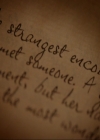 strangest encou
met someone. A
ment. But her
the most wom